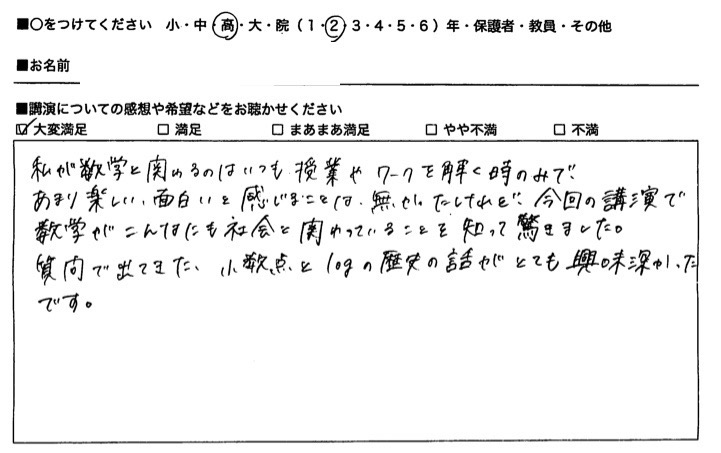 ■○をつけてください　小・中・高・大・院（1・2・3・4・5・6）年・保護者・教員・その他
■お名前
■講演についての感想や希望などをお聴かせください
☑大変満足　□満足　□まあまあ満足　□やや不満　□不満
私が数学と関わるのはいつも授業やワークを解く時のみで、
あまり楽しい、面白いと感じることは、無かったけれど、今回の講演で
数学がこんなにも社会と関わっていることを知って驚きました。
質問で出てきた、小数点とlogの歴史の話がとても興味深かった
です。